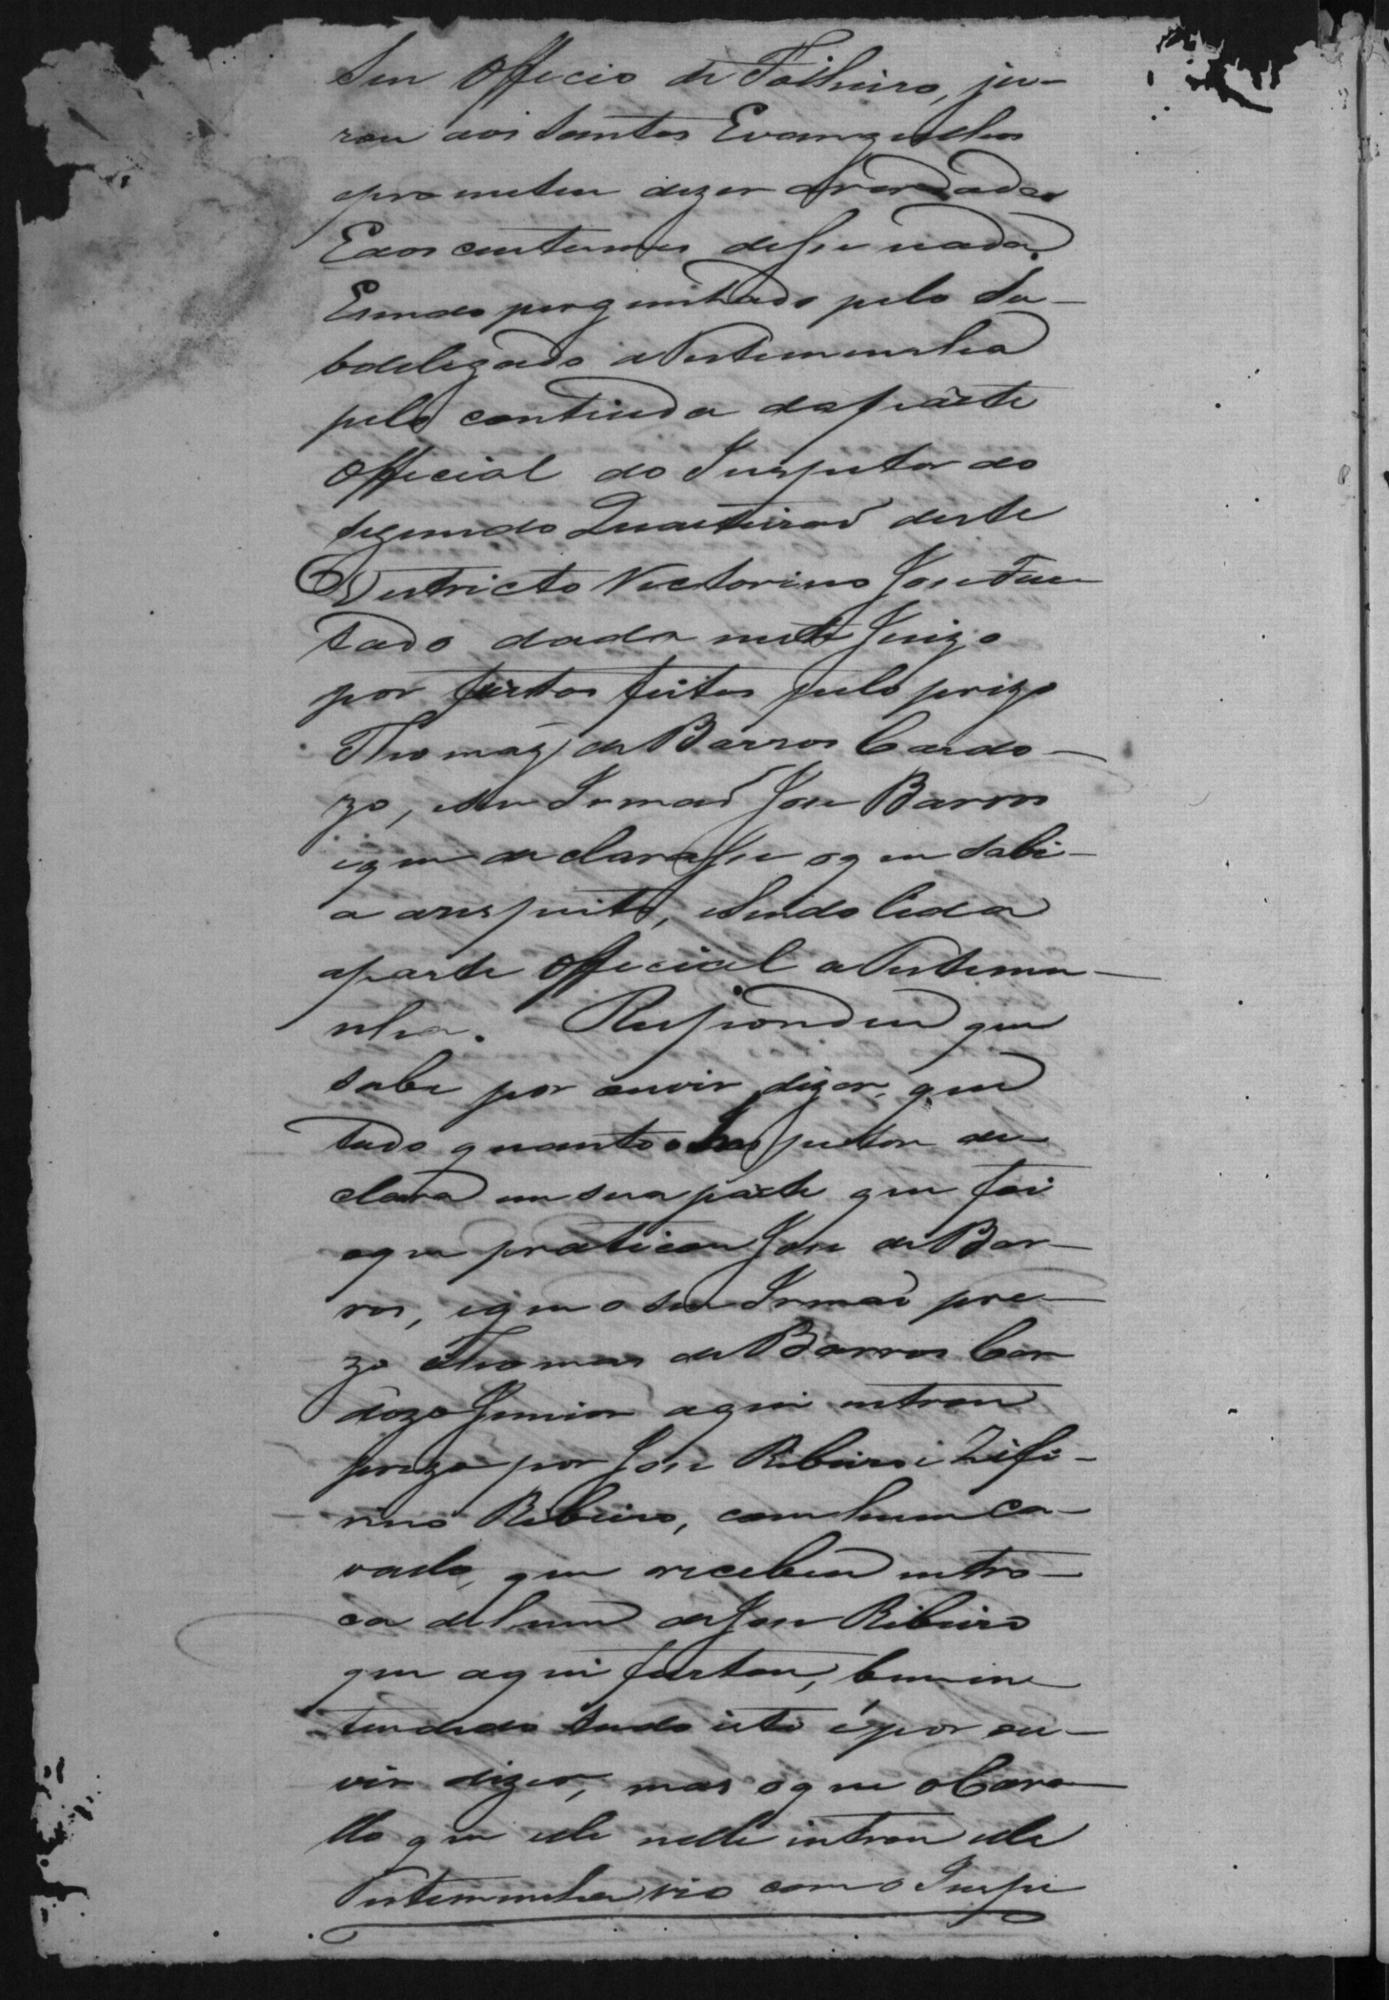 Seu Officio de Folheiro, ju-
rou aos Santos Evangelhos
eprometeu dizer averdade
Eaos custumes disse nada.
Esendo perguntado pelo Su-
bdelegado aTestemunha
pelo contiudo daparte
Official do Inspector do
segundo Quarteiraõ deste
Destricto Victorino Jose Fur
tado dada neste Juizo
por furtos feitos pelo prezo
Thomaz de Barros Cardo-
zo, eseu Irmaõ Jose Barros
eque declarasse oque sabi-
a arespeito, esendo lida
aparte Official aTestemu-
nha. Respondeu que
sabe por ouvir dizer, que
tudo quanto o Inspector de-
clara em sua parte que foi
oque praticou Jose de Bar-
ros, eque o seu Irmaõ pre-
zo Thomas de Barros Car
dozo Junior aqui entrou
prezo por Jose Ribeiro e Zife-
rino Ribeiro, com hum ca-
vallo, que recebeu entro-
ca dehum de Jose Ribeiro
que aqui furtou, bem in
tendido tudo isto é por ou-
vir dizer, mas oque oCava
llo que elle nelle entrou elle
Testemunha vio como Inspe